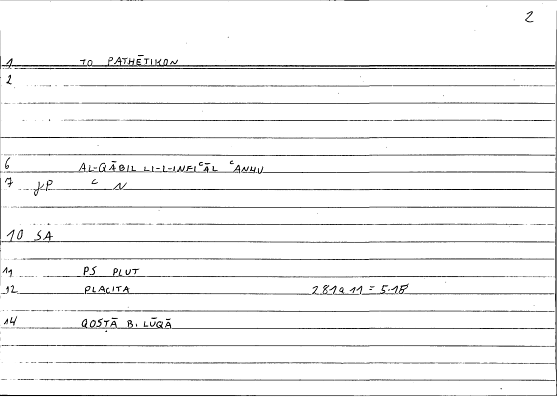 2
1 TO PATHĒTIKON
2
6 AL-QĀBIL LI-L-INFIʿĀL ʿANHU
7 ʿ N
10 SA
11 PS PLUT
12 PLACITA 281a 11 = 5.15
14 QOSṬĀ B. LŪQĀ